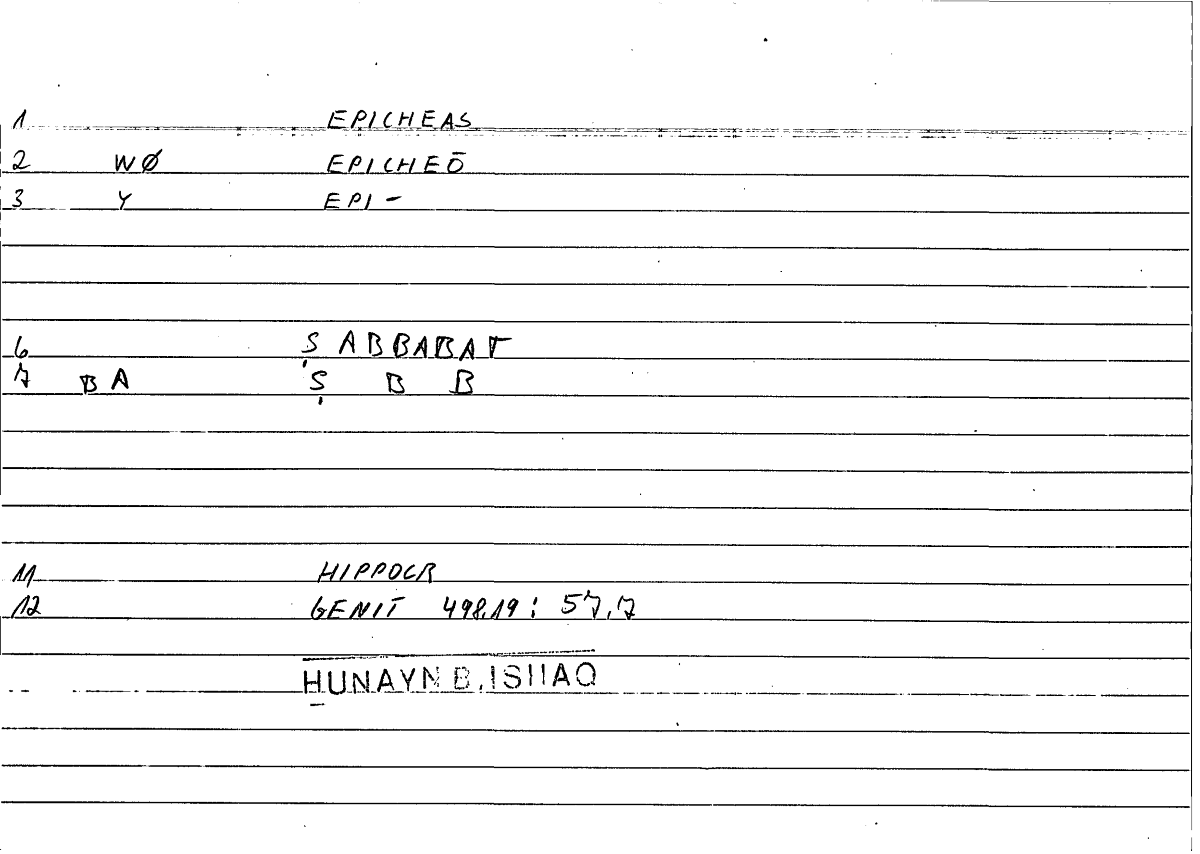 1 EPICHEAS
2 WØ EPICHEŌ
3 Y EPI-
6 ṢABBABAT
7 BA Ṣ B B
11 HIPPOCR
12 GENIT 498,19 : 57,7
ḤUNAYN B. ISḤAQ